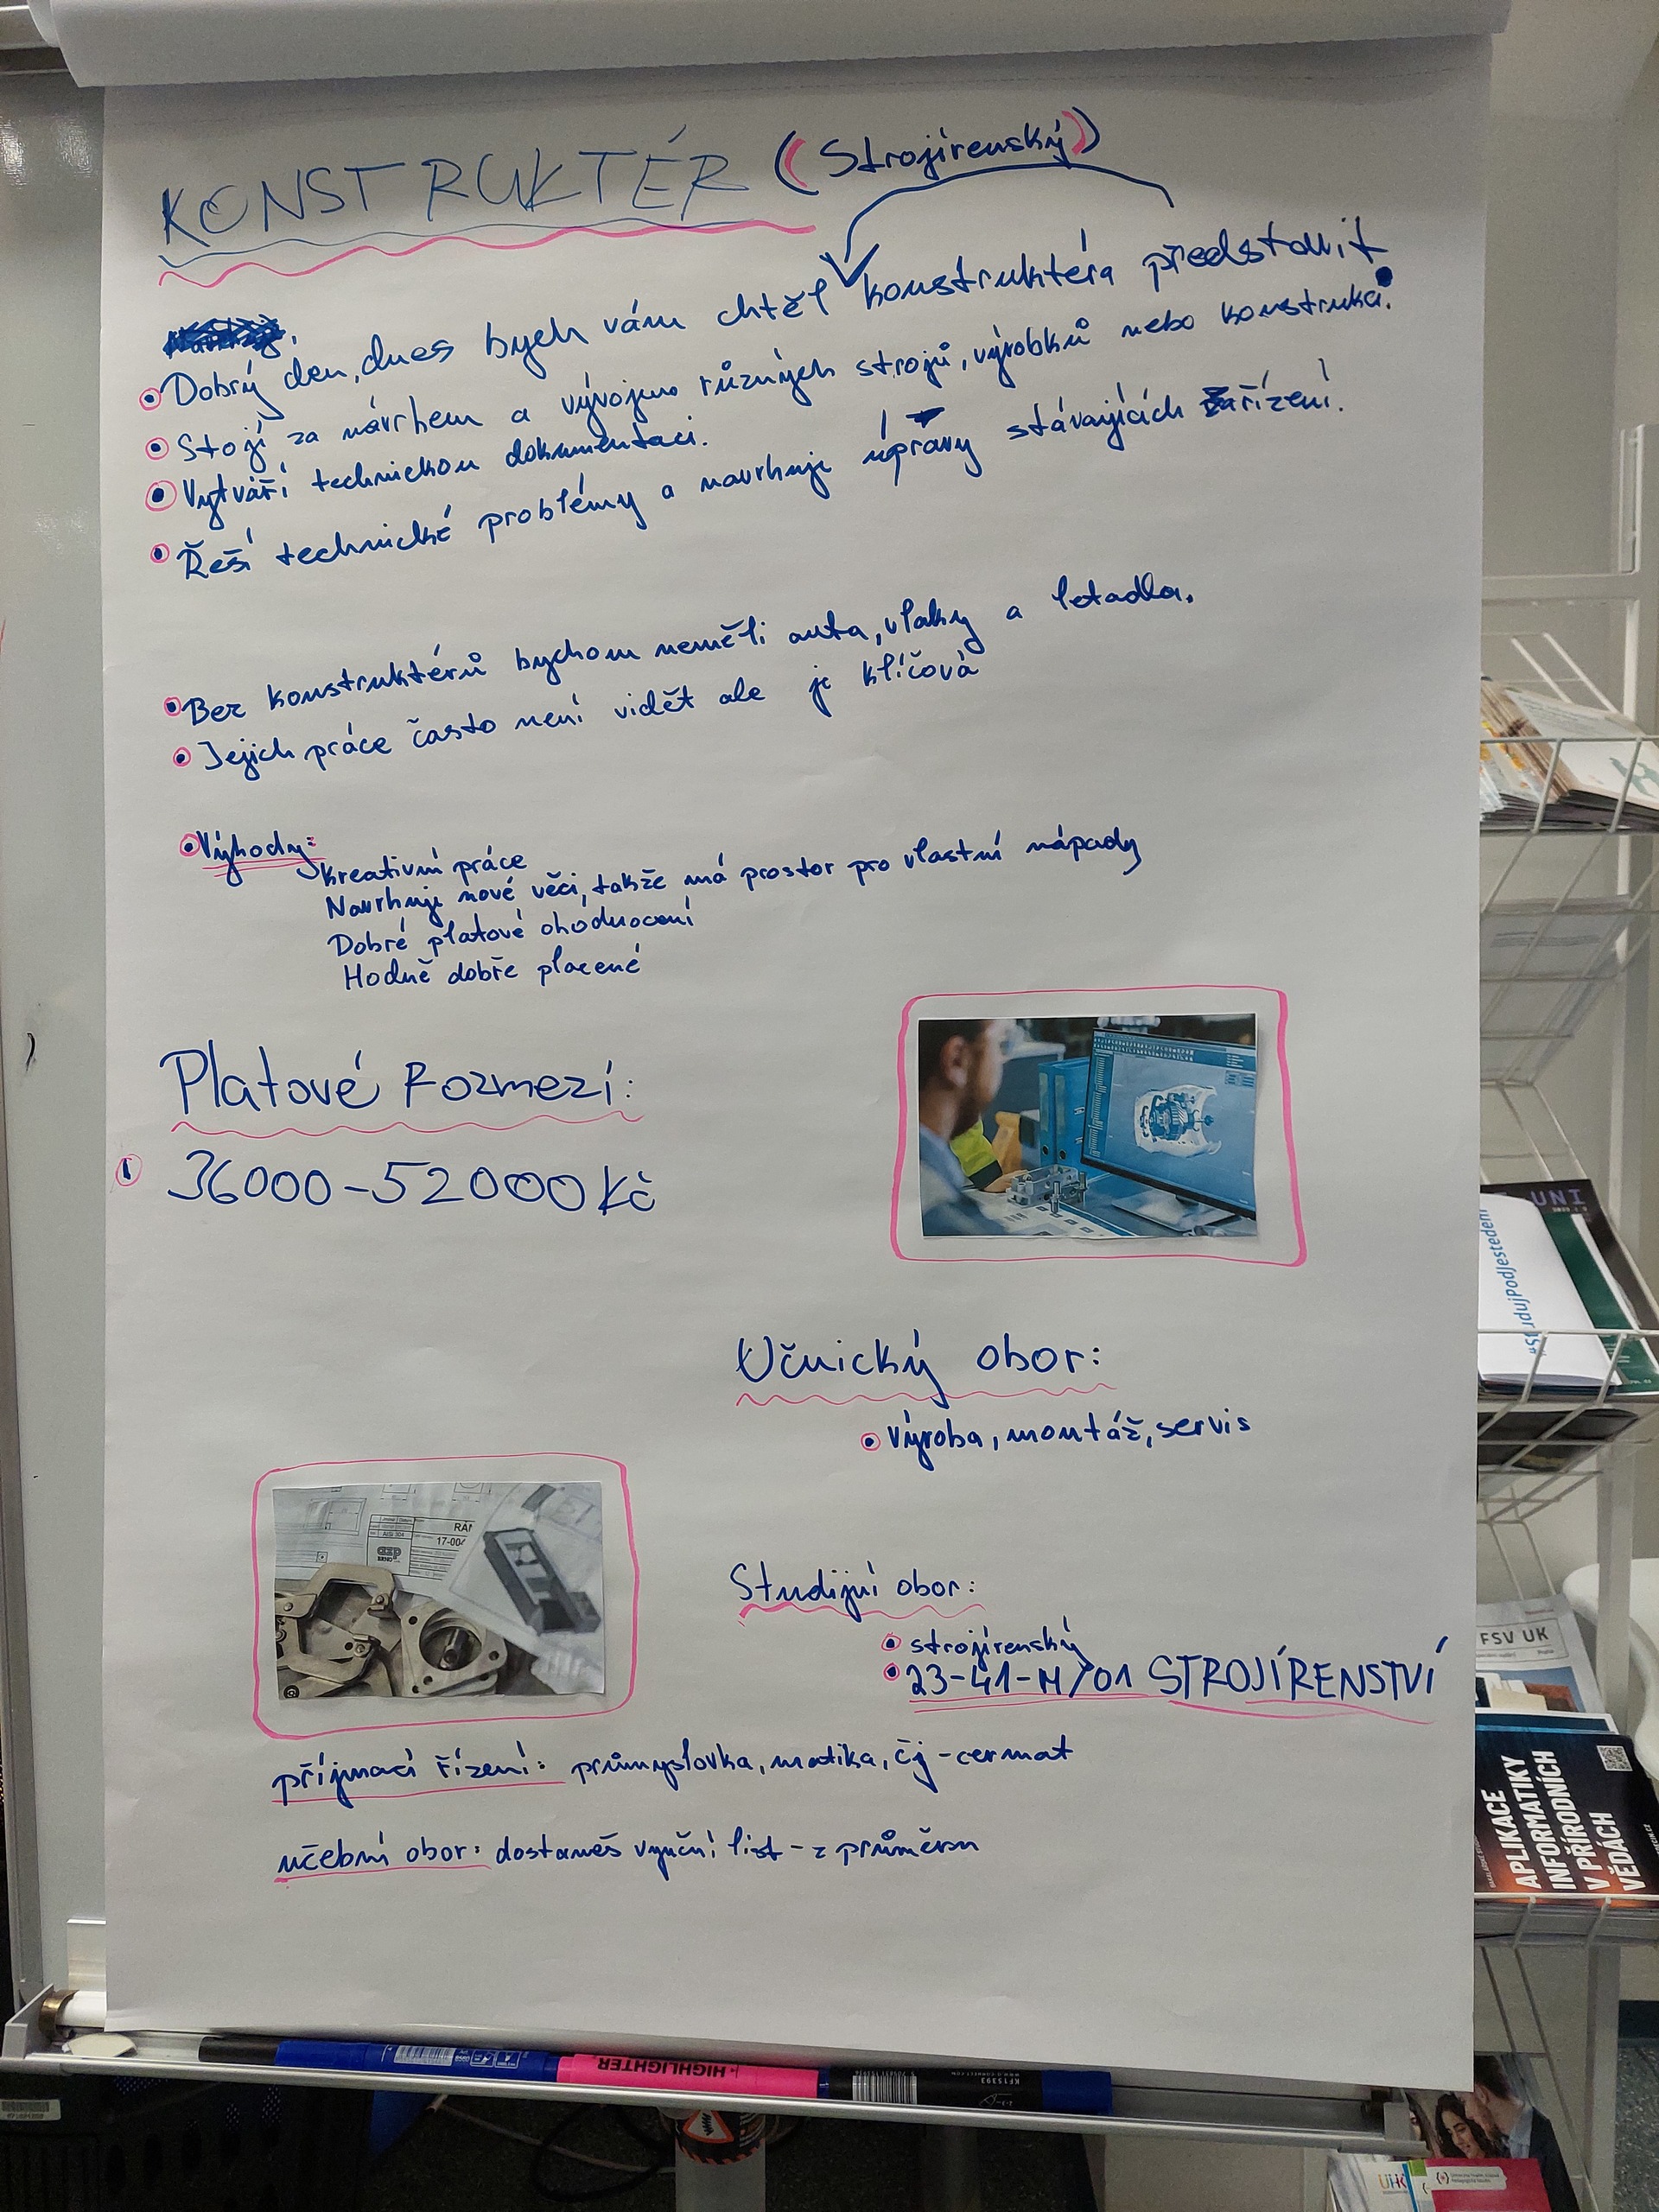 KONSTRUKTÉR (Strojírenský)
Dobrý den, dnes bych vám chtěl konstruktéra představit
Stojí za návrhem a vývojem různých strojů, výrobků nebo konstrukcí.
Vytváří technickou dokumentaci.
Řeší technické problémy a navrhuje úpravy stávajících zařízení.
Bez konstruktérů bychom neměli auta, vlaky a letadla.
Jejich práce často není vidět ale je klíčová
Výhody:
kreativní práce
Navrhuje nové věci, takže má prostor pro vlastní nápady
Dobré platové ohodnocení
Hodně dobře placené
Platové Rozmezí:
36000-52000Kč
Učnický obor:
Výroba, montáž, servis
RAM
AISI 304
17-004
BRNO
Studijní obor:
strojírenský
23-41-M/01 STROJÍRENSTVÍ
příjmací řízení: průmyslovka, matika, čj-cermat
učební obor: dostaneš vyuční list - z průměru
UNI
#StudujPodJestedem
FSV UK
APLIKACE
INFORMATIKY
V PŘÍRODNÍCH
VĚDÁCH
HIGHLIGHTER
KF15393